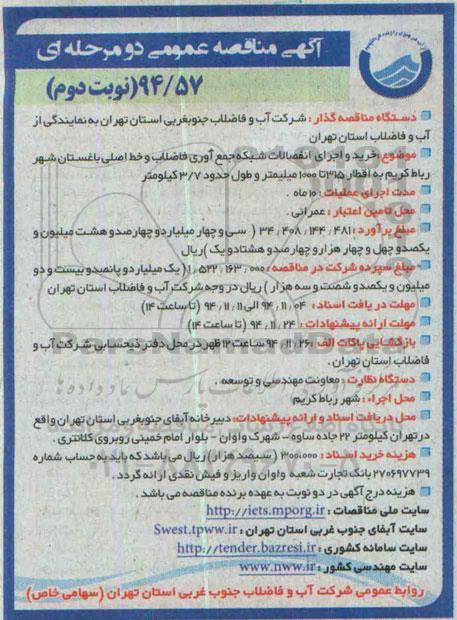 آگهی مناقصه عمومی دو مرحله ای
۹۴/۵۷ (نوبت دوم)
دستگاه مناقصه گذار : شرکت آب و فاضلاب جنوبغربی استان تهران به نمایندگی از
آب و فاضلاب استان تهران
موضوع : خرید و اجرای انفصالات شبکه جمع آوری فاضلاب و خط اصلی باغستان شهر
رباط کریم به اقطار ۳۱۵ تا ۱۰۰۰ میلیمتر و طول حدود ۳/۷ کیلومتر
مدت اجرای عملیات : ۱۰ ماه .
محل تامین اعتبار : عمرانی .
مبلغ برآورد : ۳۴،۴۰۸،۱۴۴،۴۸۱ ( سی و چهار میلیارد و چهارصد و هشت میلیون و
یکصد و چهل و چهار هزار و چهارصد و هشتاد و یک ) ریال
مبلغ سپرده شرکت در مناقصه : ۱،۵۲۲،۱۶۳،۰۰۰ ( یک میلیارد و پانصد و بیست و دو
میلیون و یکصد و شصت و سه هزار ) ریال در وجه شرکت آب و فاضلاب استان تهران
مهلت دریافت اسناد : ۹۴،۱۱،۰۴ الی ۹۴،۱۱،۱۱ (تا ساعت ۱۴)
مهلت ارائه پیشنهادات : ۹۴،۱۱،۲۴ (تا ساعت ۱۴)
بازگشایی پاکات الف : ۹۴،۱۱،۲۶ ساعت ۱۲ ظهر در محل دفتر ذیحسابی شرکت آب و
فاضلاب استان تهران .
دستگاه نظارت : معاونت مهندسی و توسعه .
محل اجراء : شهر رباط کریم
محل دریافت اسناد و ارائه پیشنهادات : دبیرخانه آبفای جنوبغربی استان تهران واقع
در تهران کیلومتر ۲۲ جاده ساوه – شهرک واوان – بلوار امام خمینی روبروی کلانتری .
هزینه خرید اسناد : ۳۰۰،۰۰۰ ( سیصد هزار ) ریال می باشد که باید به حساب شماره
۲۷۰۶۹۷۷۳۹ بانک تجارت شعبه واوان واریز و فیش نقدی ارائه گردد .
هزینه درج آگهی در دو نوبت به عهده برنده مناقصه می باشد .
سایت ملی مناقصات : http://iets.mporg.ir
سایت آبفای جنوب غربی استان تهران : Swest.tpww.ir
سایت سامانه کشوری : http://tender.bazresi.ir
سایت مهندسی کشور : www.nww.ir
روابط عمومی شرکت آب و فاضلاب جنوب غربی استان تهران (سهامی خاص)